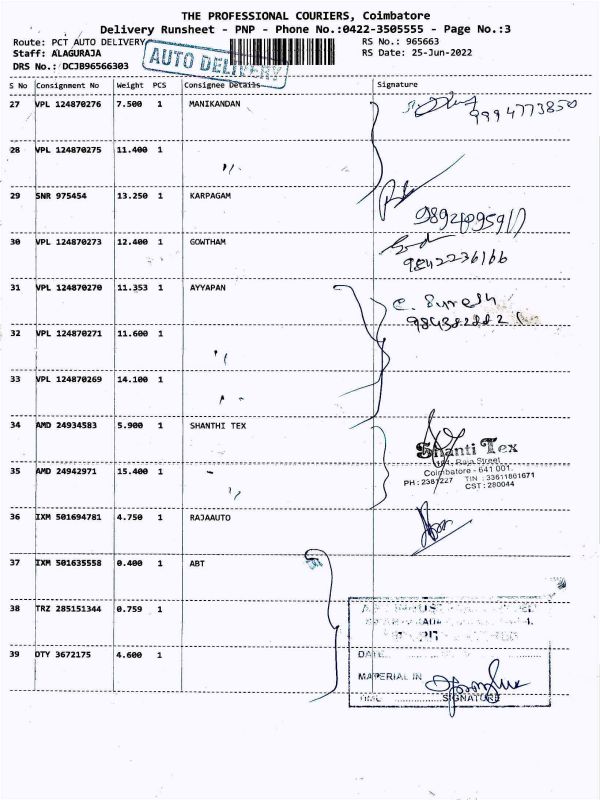 THE PROFESSIONAL COURIERS, Coimbatore
Delivery Runsheet - PNP - Phone No.:0422-3505555 - Page No.:3
Route: PCT AUTO DELIVERY
RS No.: 965663
Staff: ALAGURAJA
RS Date: 25-Jun-2022
DRS No.: DCJB96566303
AUTO DELIVERY
S No Consignment No Weight PCS Consignee Details Signature
27 VPL 124870276 7.500 1 MANIKANDAN
9994773850
28 VPL 124870275 11.400 1
29 SNR 975454 13.250 1 KARPAGAM
30 VPL 124870273 12.400 1 GOWTHAM
9842236166
31 VPL 124870270 11.353 1 AYYAPAN
C. Suresh
32 VPL 124870271 11.600 1
33 VPL 124870269 14.100 1
34 AMD 24934583 5.900 1 SHANTHI TEX
Shanti Tex
Raja Street
Coimbatore - 641 001.
PH: 2381227 TIN : 33611861671
CST: 280044
35 AMD 24942971 15.400 1
36 IXM 501694781 4.750 1 RAJAAUTO
37 IXM 501635558 0.400 1 ABT
38 TRZ 285151344 0.759 1
39 DTY 3672175 4.600 1
DATE
MATERIAL IN
TIME SIGNATURE